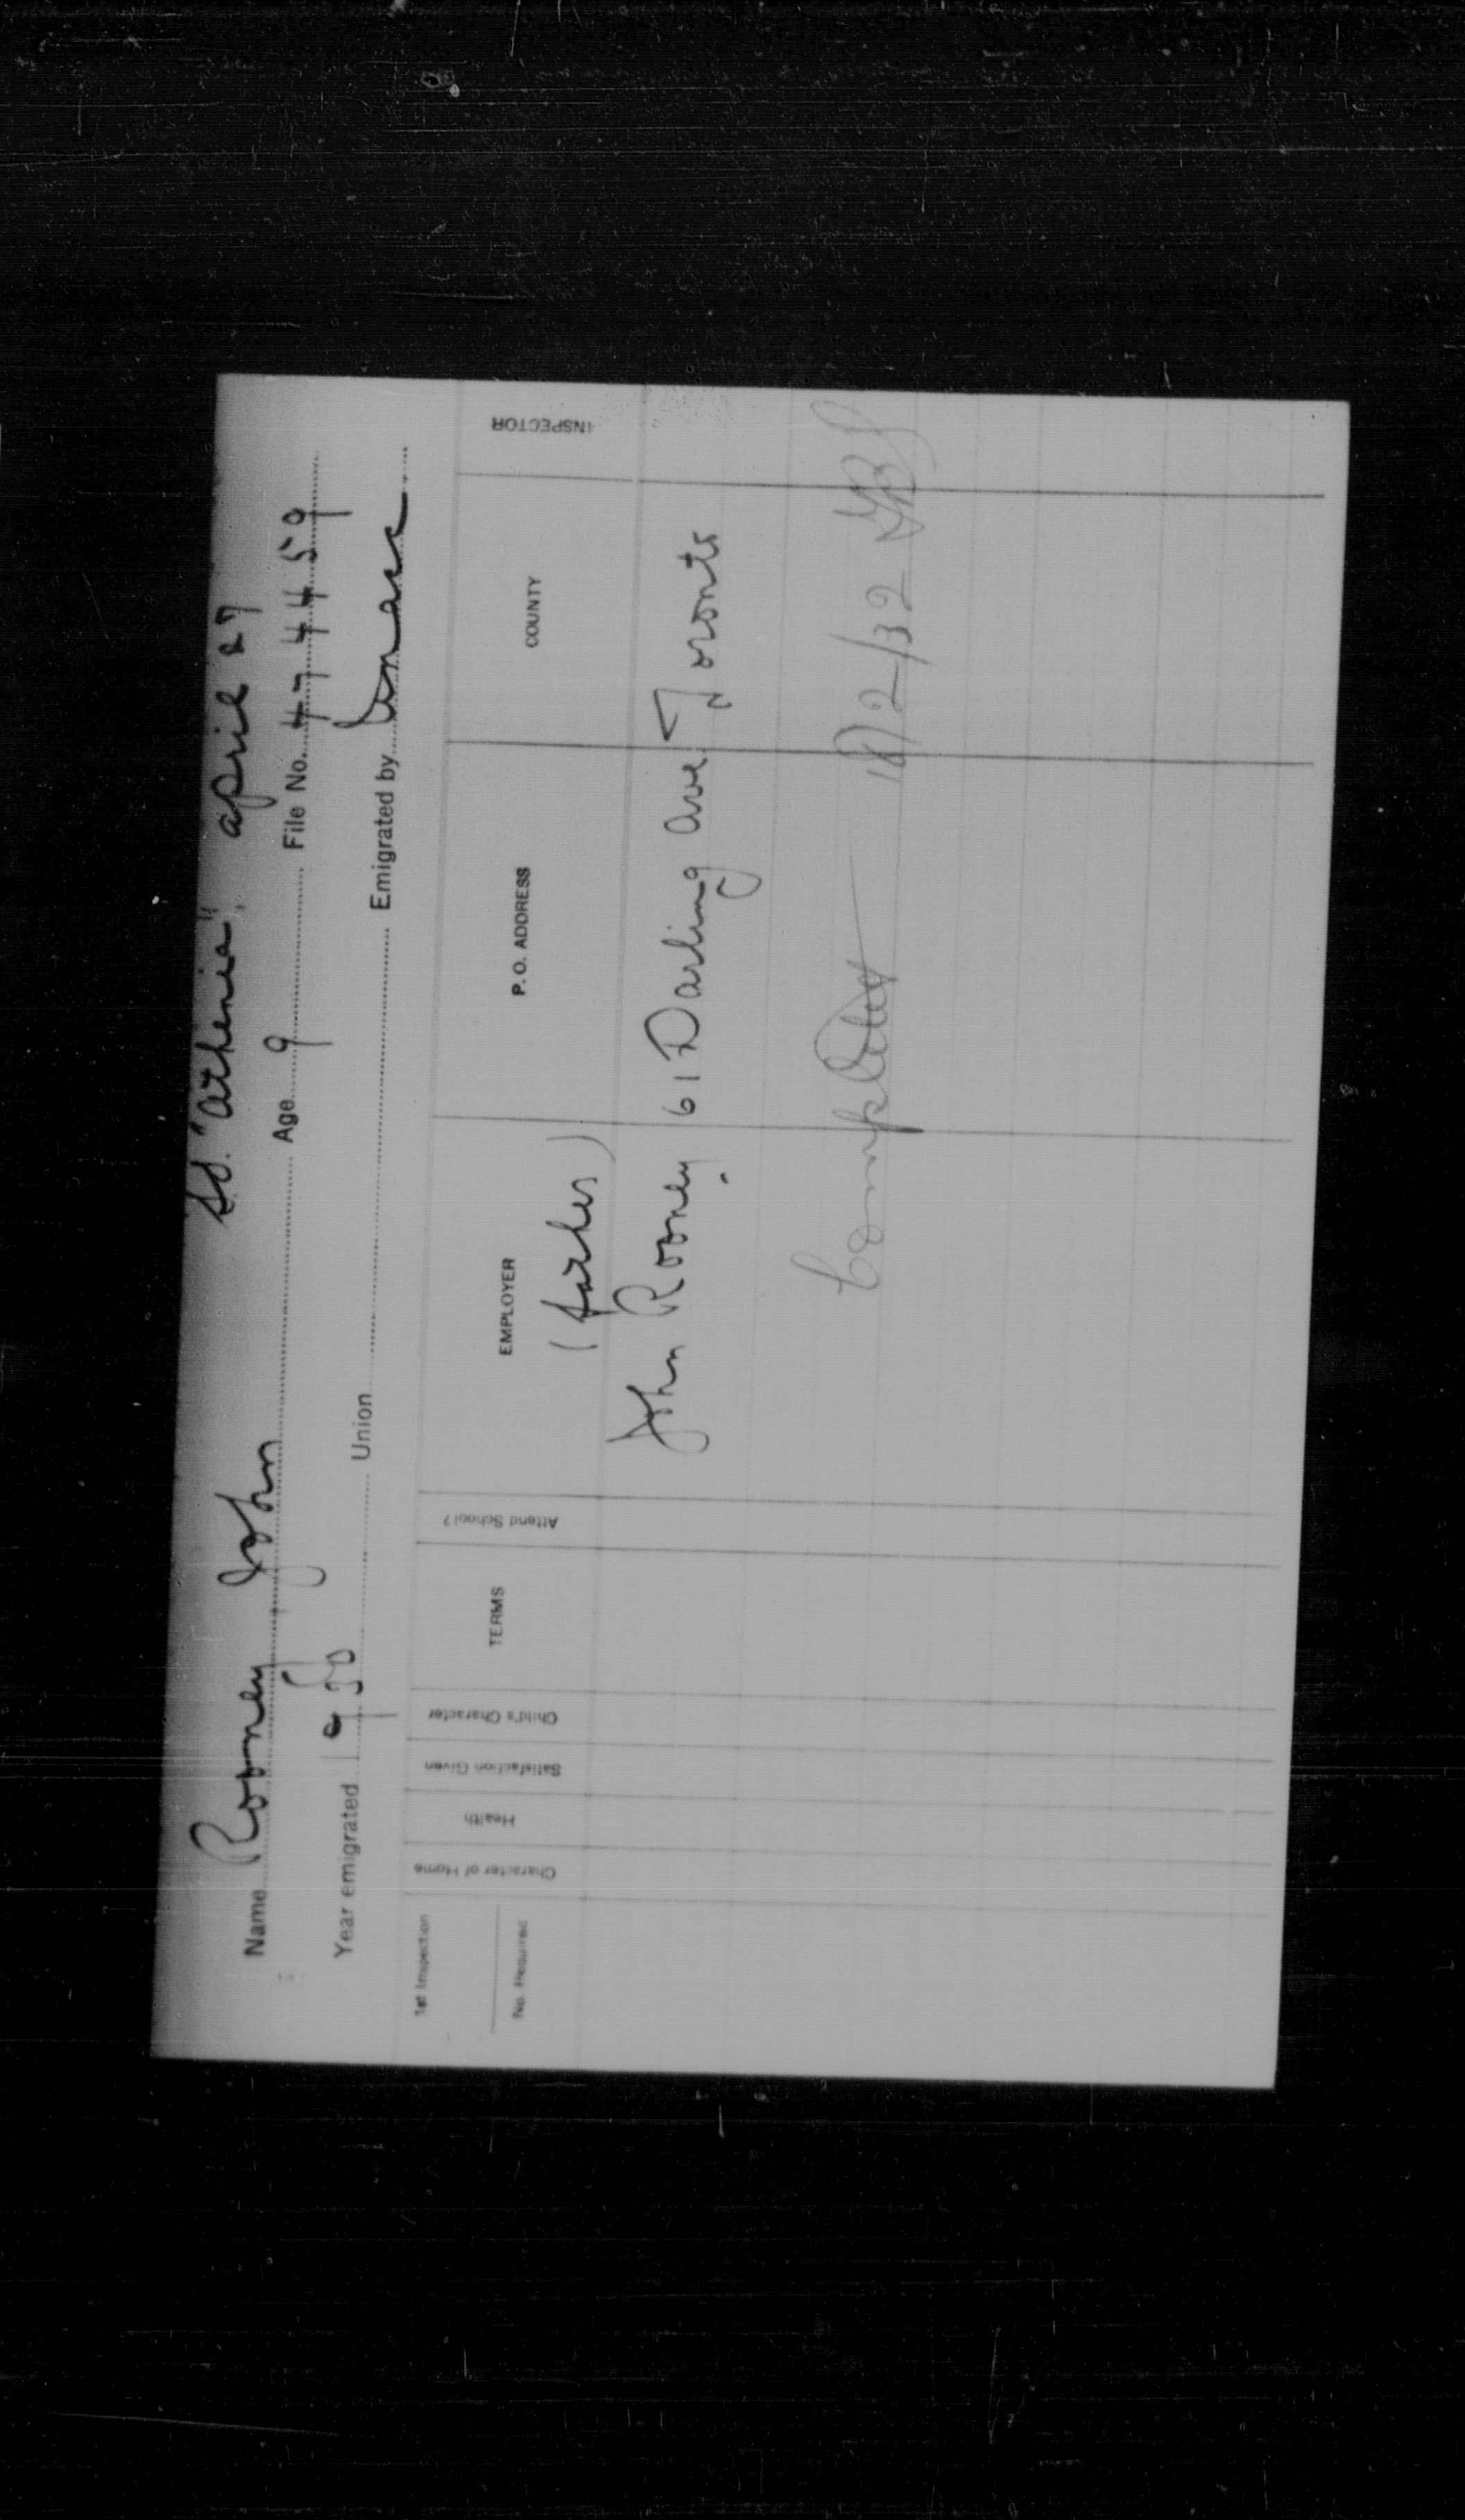 SS. "Athenia", April 27
Name Rooney John Age 9 File No. 474459
Year emigrated 1930 Union Emigrated by
1st Inspection
No. Required
Character of Home
Health
Satisfaction Given
Child's Character
TERMS
Attend School?
EMPLOYER
P. O. ADDRESS
COUNTY
INSPECTOR
(father)
John Rooney 61 Darling Ave. Toronto
Completed 2/32